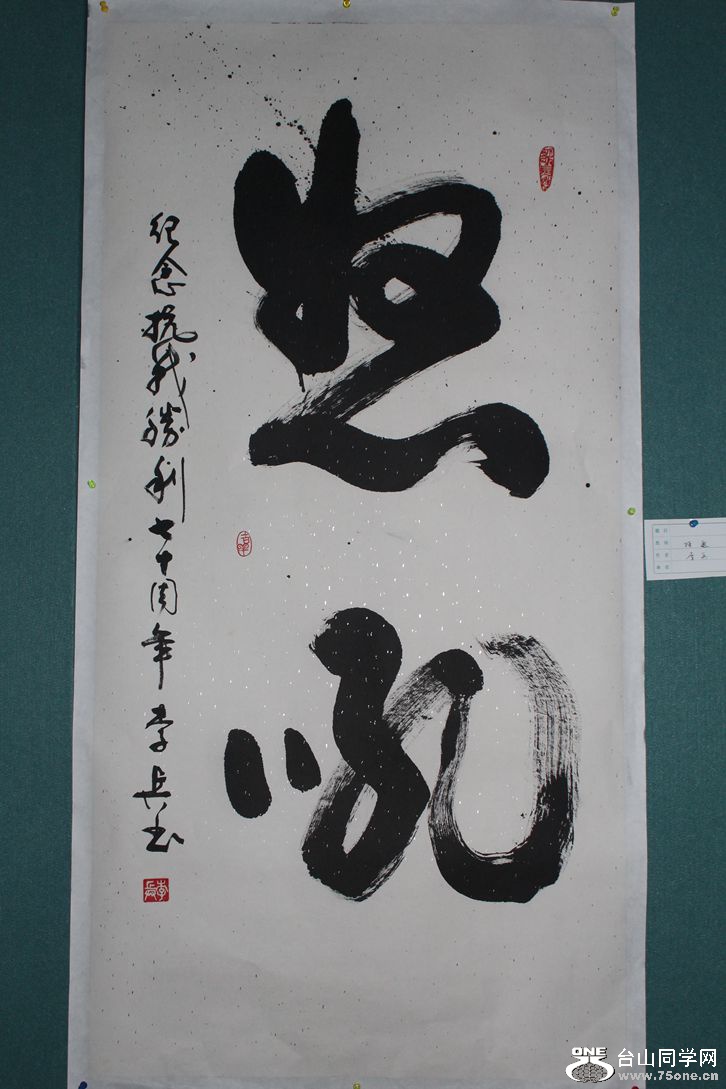 怒吼
纪念抗战勝利七十周年 李兵书
ONE 台山同学网
www.75one.cn